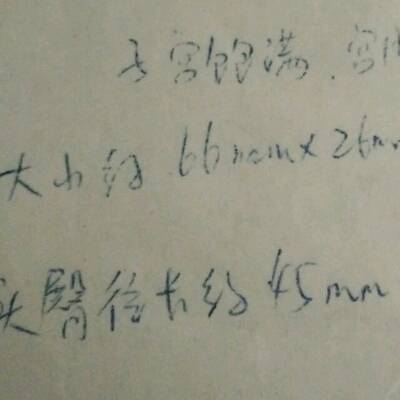 子宫饱满，宫内
大小约 66mm×26mm
头臀径长约 45mm